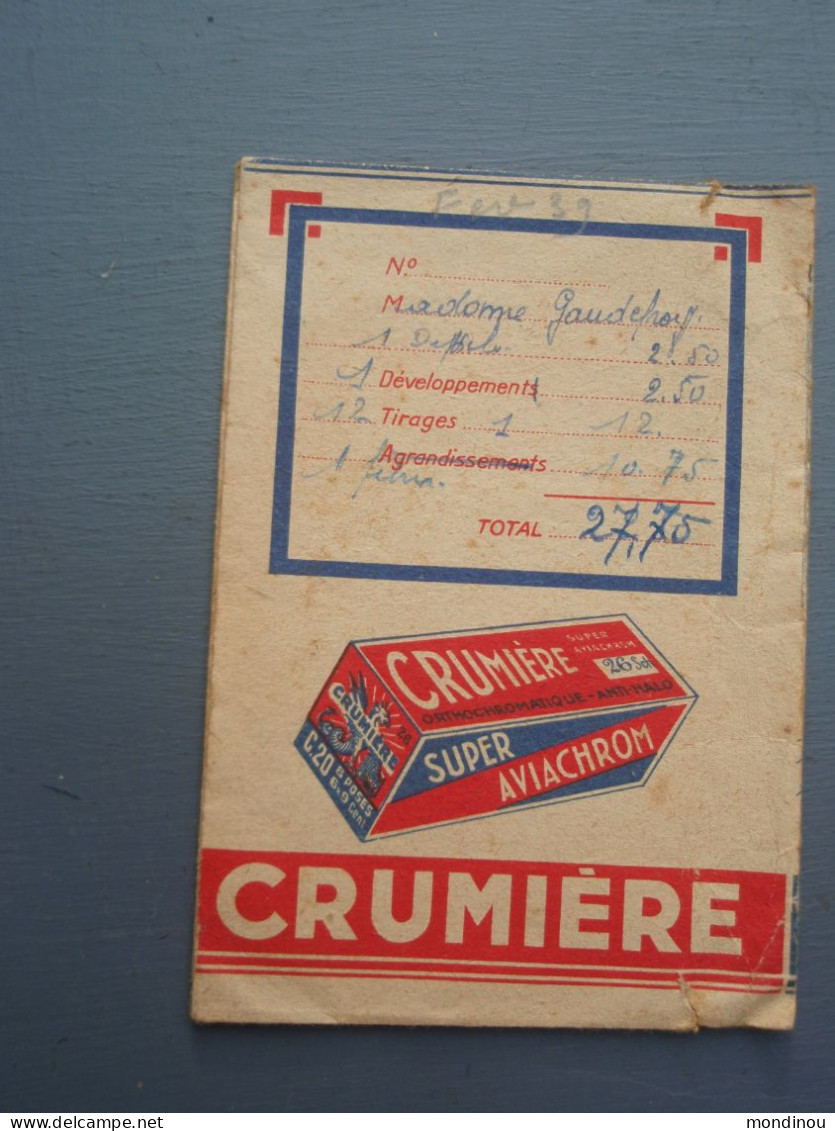 Fev 39
N°
Madame Gaudefroy.
1 2.50
1 Développements 2.50
12 Tirages 1 12.
Agrandissements 10.75
1 film.
TOTAL 27,75
CRUMIÈRE SUPER AVIACHROM 26 Sch
ORTHOCHROMATIQUE - ANTI-HALO
CRUMIÈRE 26
SUPER
AVIACHROM
C.20 6 POSES
6x9 Cent.
CRUMIÈRE
delcampe.net
mondinou